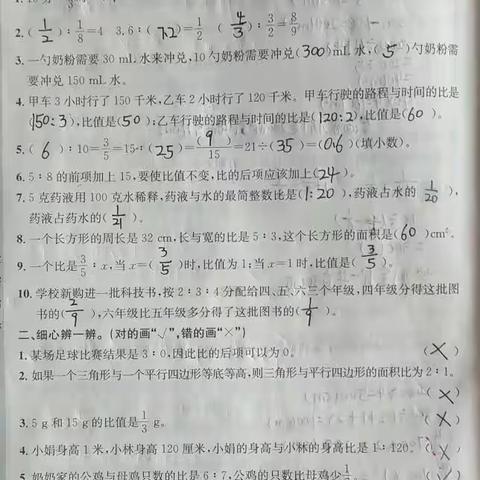 2. (1/2) : 1/8 = 4  3.6 : (7.2) = 1/2  (4/3) : 3/2 = 8/9
3. 一勺奶粉需要 30 mL 水来冲兑,10 勺奶粉需要冲兑(300)mL 水,(5)勺奶粉需
要冲兑 150 mL 水。
4. 甲车 3 小时行了 150 千米,乙车 2 小时行了 120 千米。甲车行驶的路程与时间的比是
(150:3),比值是(50);乙车行驶的路程与时间的比是(120:2),比值是(60)。
5. (6) : 10 = 3/5 = 15 : (25) = (9)/15 = 21 ÷ (35) = (0.6)(填小数)。
6. 5 : 8 的前项加上 15,要使比值不变,比的后项应该加上(24)。
7. 5 克药液用 100 克水稀释,药液与水的最简整数比是(1:20),药液占水的(1/20),
药液占药水的(1/21)。
8. 一个长方形的周长是 32 cm,长与宽的比是 5 : 3,这个长方形的面积是(60)cm²。
9. 一个比是 3/5 : x,当 x=(3/5)时,比值为 1;当 x=1 时,比值是(3/5)。
10. 学校新购进一批科技书,按 2 : 3 : 4 分配给四、五、六三个年级,四年级分得这批图
书的(2/9),六年级比五年级多分得了这批图书的(1/9)。
二、细心辨一辨。(对的画“√”,错的画“×”)
1. 某场足球比赛结果是 3 : 0,因此比的后项可以为 0。 (×)
2. 如果一个三角形与一个平行四边形等底等高,则三角形与平行四边形的面积比为 2 : 1。
(×)
3. 5 g 和 15 g 的比值是 1/3 g。 (×)
4. 小娟身高 1 米,小林身高 120 厘米,小娟的身高与小林的身高比是 1 : 120。 (×)
5. 奶奶家的公鸡与母鸡只数的比是 6 : 7,公鸡的只数比母鸡少